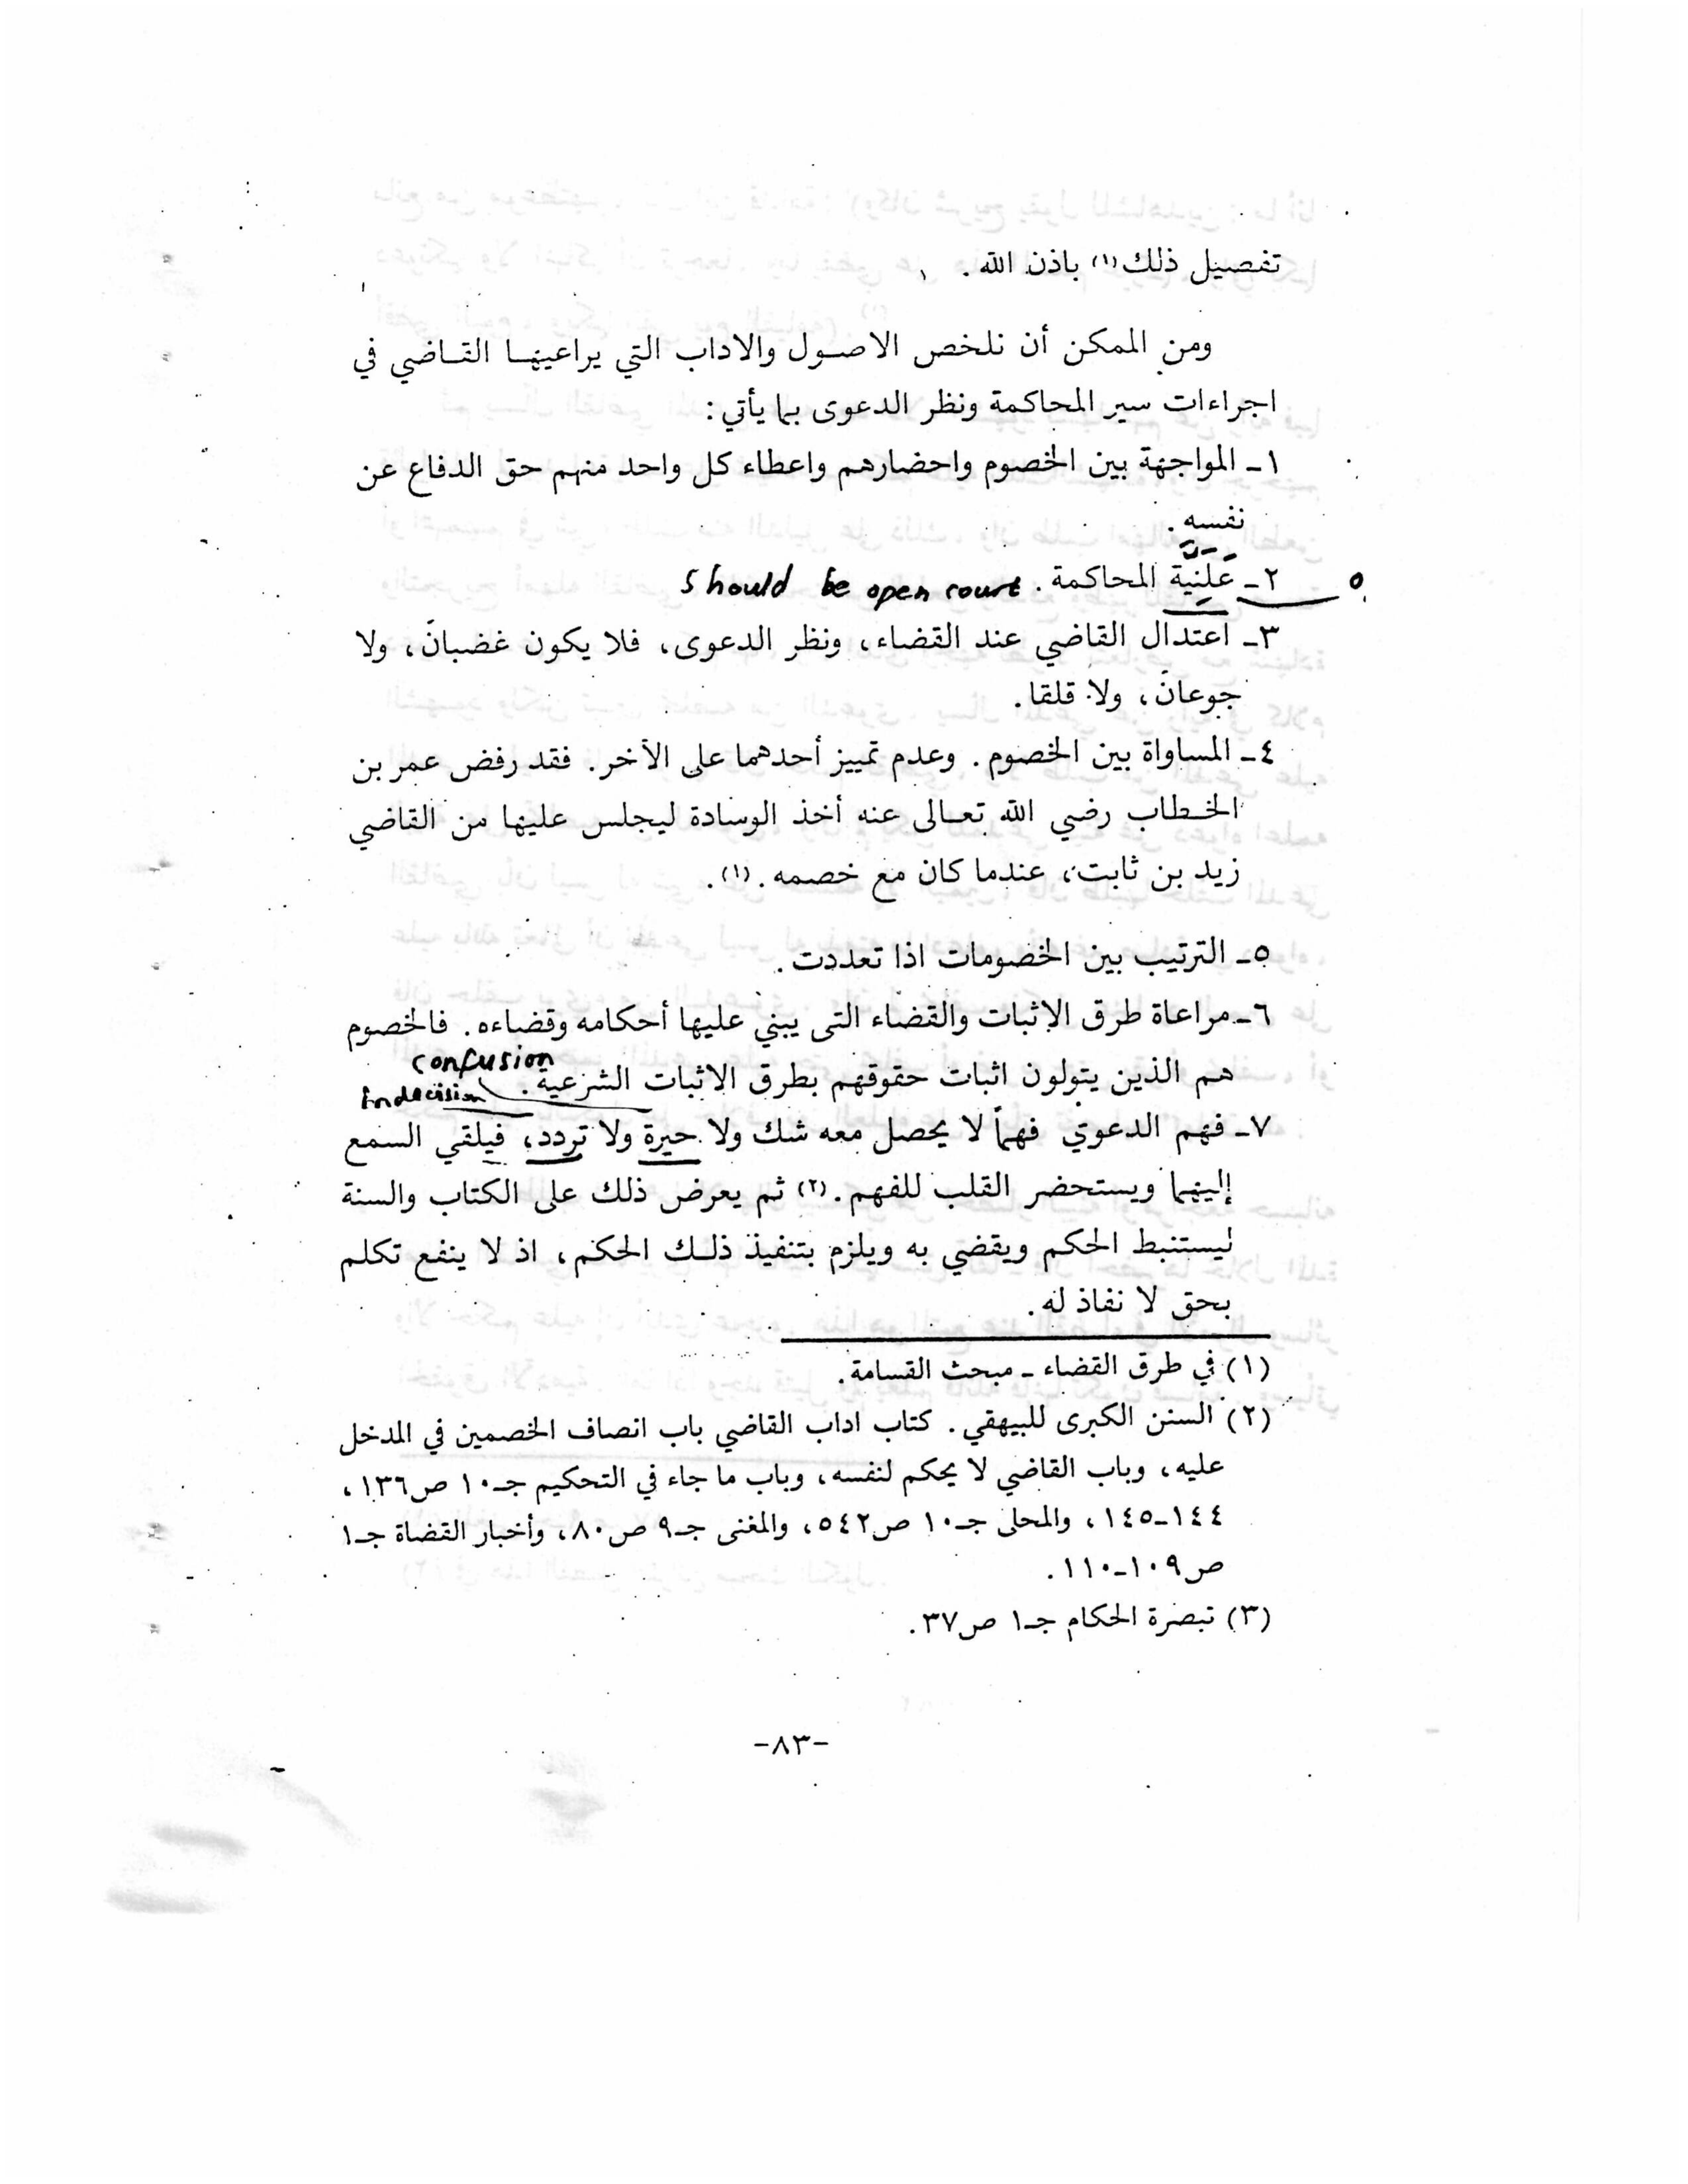 تفصيل ذلك(١) باذن الله .
ومن الممكن أن نلخص الاصول والاداب التي يراعيها القاضي في
اجراءات سير المحاكمة ونظر الدعوى بما يأتي:
١ـ المواجهة بين الخصوم واحضارهم واعطاء كل واحد منهم حق الدفاع عن
نفسه .
٢ـ عَلَنِيَّة المحاكمة . should be open court.
٣ـ اعتدال القاضي عند القضاء، ونظر الدعوى، فلا يكون غضبانَ، ولا
جوعانَ، ولا قلقا.
٤ـ المساواة بين الخصوم . وعدم تمييز أحدهما على الآخر. فقد رفض عمر بن
الخطاب رضي الله تعالى عنه أخذ الوسادة ليجلس عليها من القاضي
زيد بن ثابت، عندما كان مع خصمه .(١).
٥ـ الترتيب بين الخصومات اذا تعددت.
٦ـ مراعاة طرق الإثبات والقضاء التى يبني عليها أحكامه وقضاءه. فالخصوم
confusion
هم الذين يتولون اثبات حقوقهم بطرق الاثبات الشرعية.
indecision
٧ـ فهم الدعوي فهماً لا يحصل معه شك ولا حيرة ولا تردد، فيلقي السمع
إليهما ويستحضر القلب للفهم .(٢) ثم يعرض ذلك على الكتاب والسنة
ليستنبط الحكم ويقضي به ويلزم بتنفيذ ذلك الحكم، اذ لا ينفع تكلم
بحق لا نفاذ له.
(١) في طرق القضاء ـ مبحث القسامة.
(٢) السنن الكبرى للبيهقي . كتاب اداب القاضي باب انصاف الخصمين في المدخل
عليه، وباب القاضي لا يحكم لنفسه، وباب ما جاء في التحكيم جـ١٠ ص١٣٦،
١٤٤ـ١٤٥، والمحلى جـ١٠ ص٥٤٢، والمغنى جـ٩ ص٨٠، وأخبار القضاة جـ١
ص١٠٩ـ١١٠.
(٣) تبصرة الحكام جـ١ ص٣٧.
-٨٣-